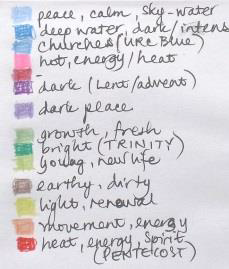 peace, calm, sky-water
deep water, dark/intens
churches (URC Blue)
hot, energy/heat
dark (Lent/advent)
dark peace
growth, fresh
bright (TRINITY)
young, new life
earthy, dirty
light, renewal
movement, energy
heat, energy, spirit
(PENTECOST)